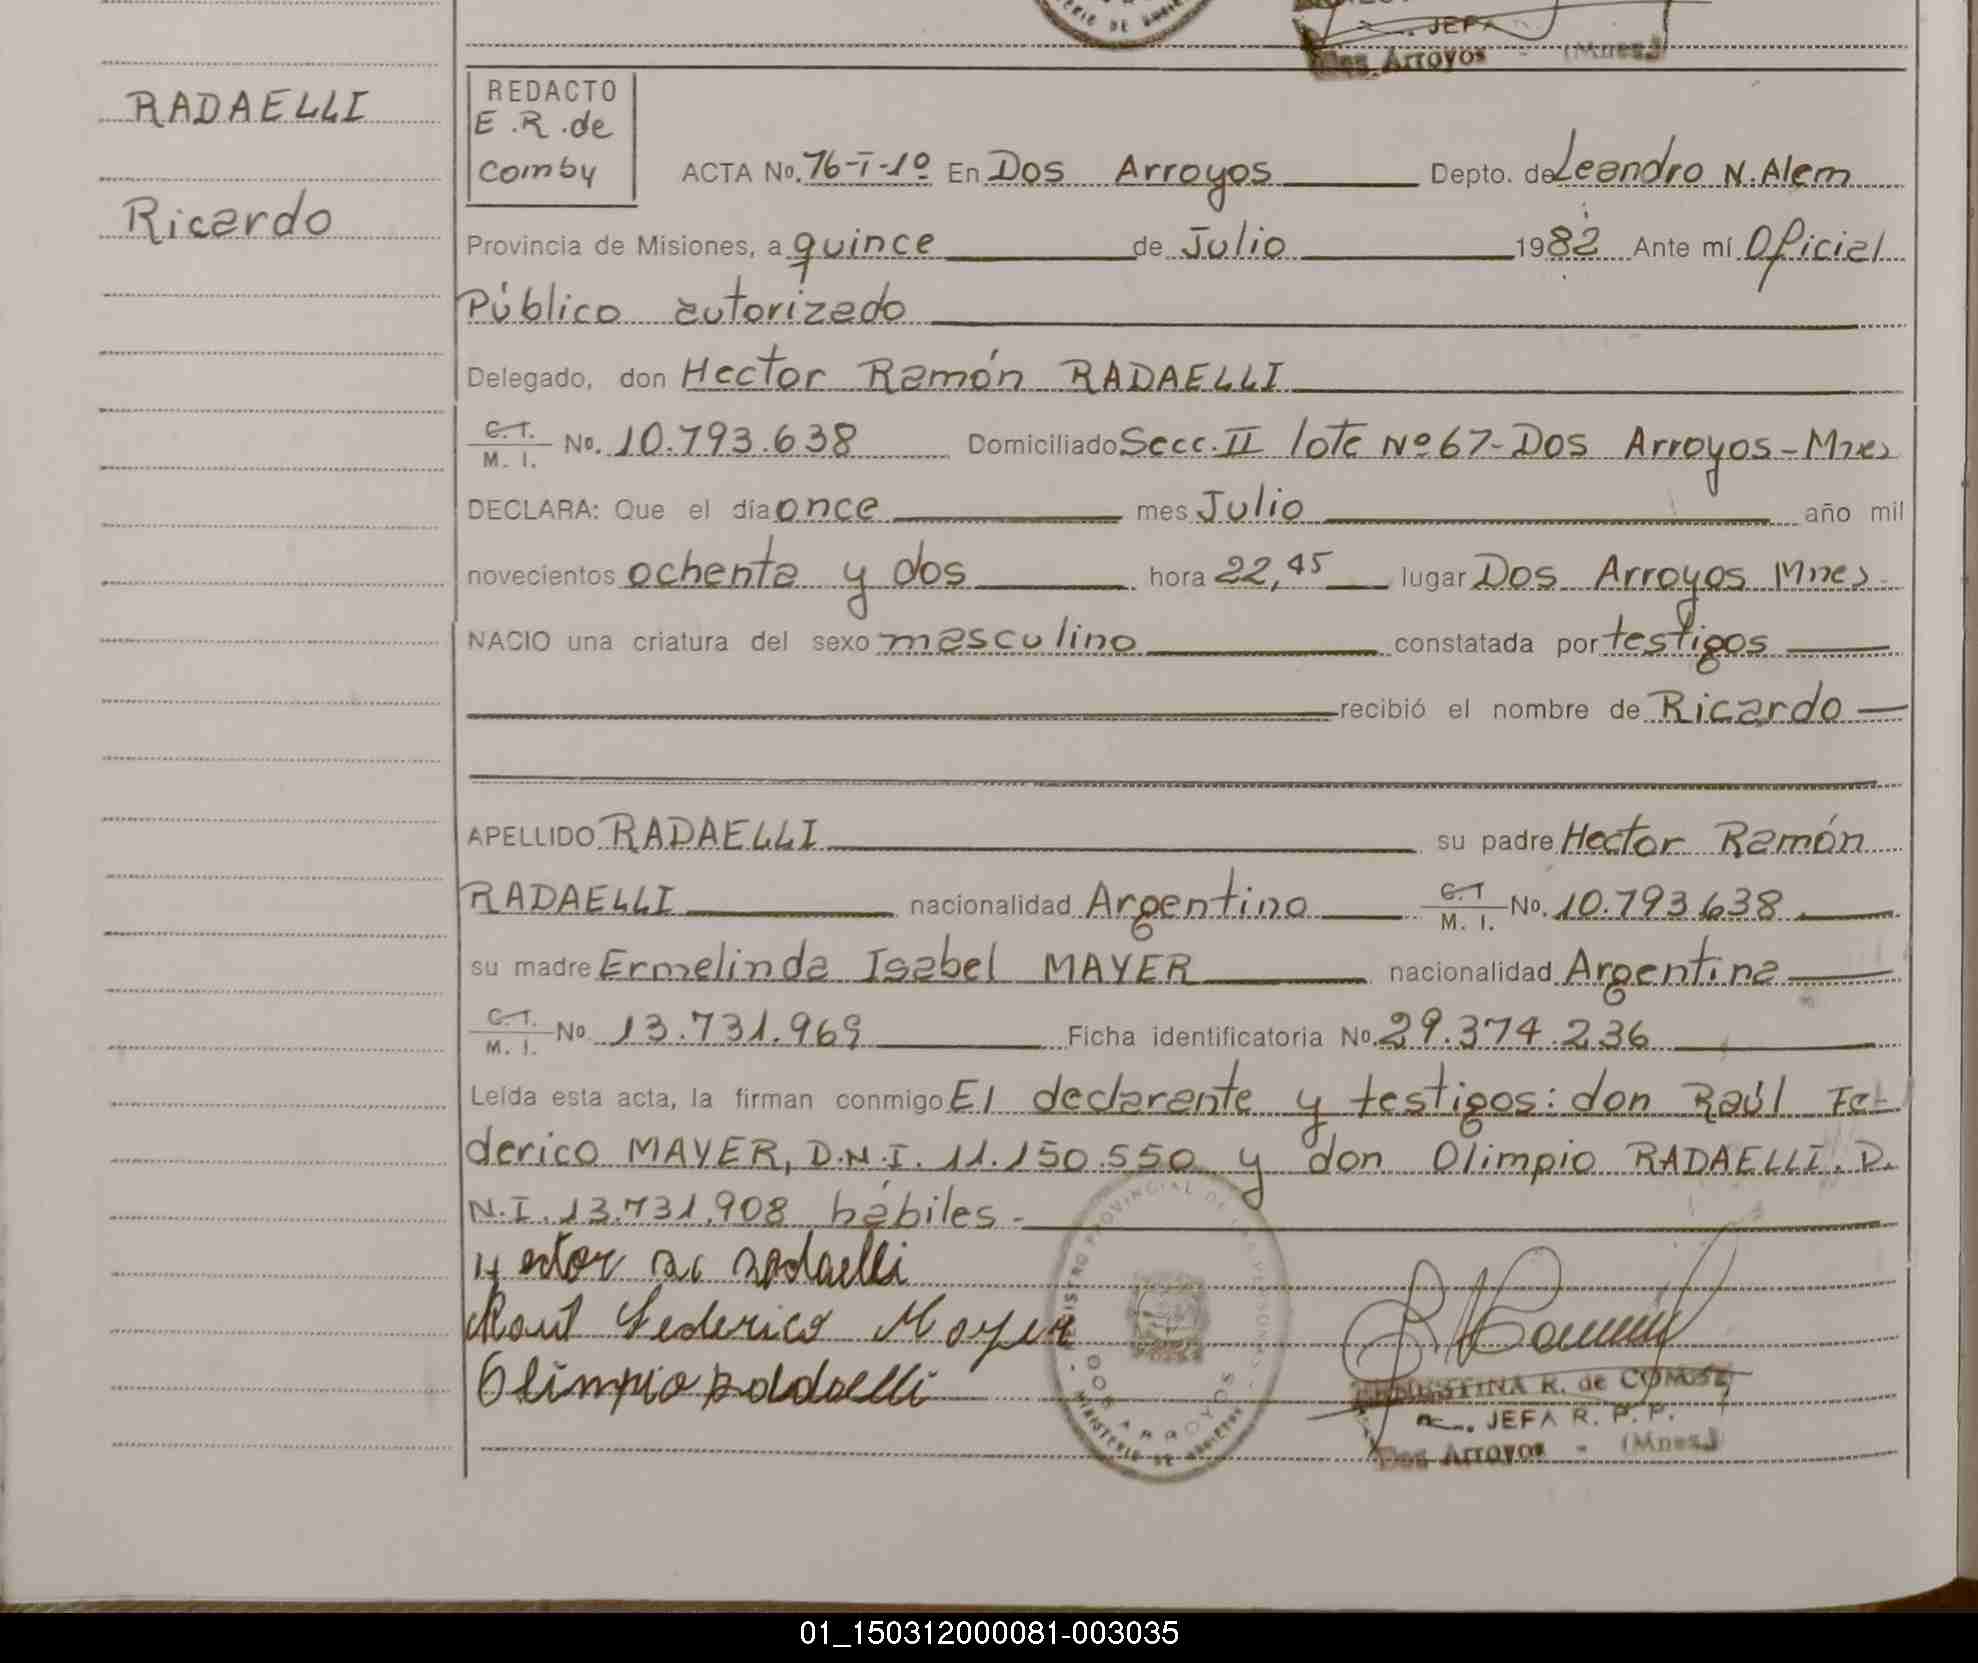 MINISTERIO DE GOBIERNO
JEFA
Dos Arroyos - (Mnes.)
RADAELLI
Ricardo
REDACTO
E.R.de
Comby
ACTA No. 76-I-1º En Dos Arroyos Depto. de Leandro N. Alem
Provincia de Misiones, a quince de Julio 1982 Ante mí Oficial
Público autorizado
Delegado, don Hector Ramón RADAELLI
C.I.
M. I. No. 10.793.638 Domiciliado Secc. II lote Nº 67- Dos Arroyos - Mnes
DECLARA: Que el día once mes Julio año mil
novecientos ochenta y dos hora 22,45 lugar Dos Arroyos Mnes.
NACIO una criatura del sexo masculino constatada por testigos
recibió el nombre de Ricardo
APELLIDO RADAELLI su padre Hector Ramón
RADAELLI nacionalidad Argentino C.I. M. I. No. 10.793.638
su madre Ermelinda Isabel MAYER nacionalidad Argentina
C.I. M. I. No. 13.731.969 Ficha identificatoria No. 29.374.236
Leída esta acta, la firman conmigo El declarante y testigos: don Raúl Fe-
derico MAYER, D.N.I. 11.150.550 y don Olimpio RADAELLI. D.
N.I. 13.731.908 hábiles.-
Hector Ra Radaelli
Raul Federico Mayer
Olimpio Radaelli
REGISTRO PROVINCIAL DE LAS PERSONAS
DOS ARROYOS
MINISTERIO DE GOBIERNO
R. de COMBY
JEFA R. P. P.
Dos Arroyos - (Mnes.)
01_150312000081-003035